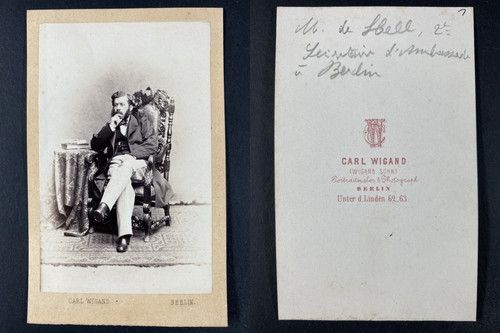 CARL WIGAND
BERLIN.
M. de Sbell, 2e
Secrétaire d'Ambassade
à Berlin
CW
CARL WIGAND
(WIGAND SOHN)
Portraitmaler & Photograph
BERLIN
Unter d. Linden 62.63.